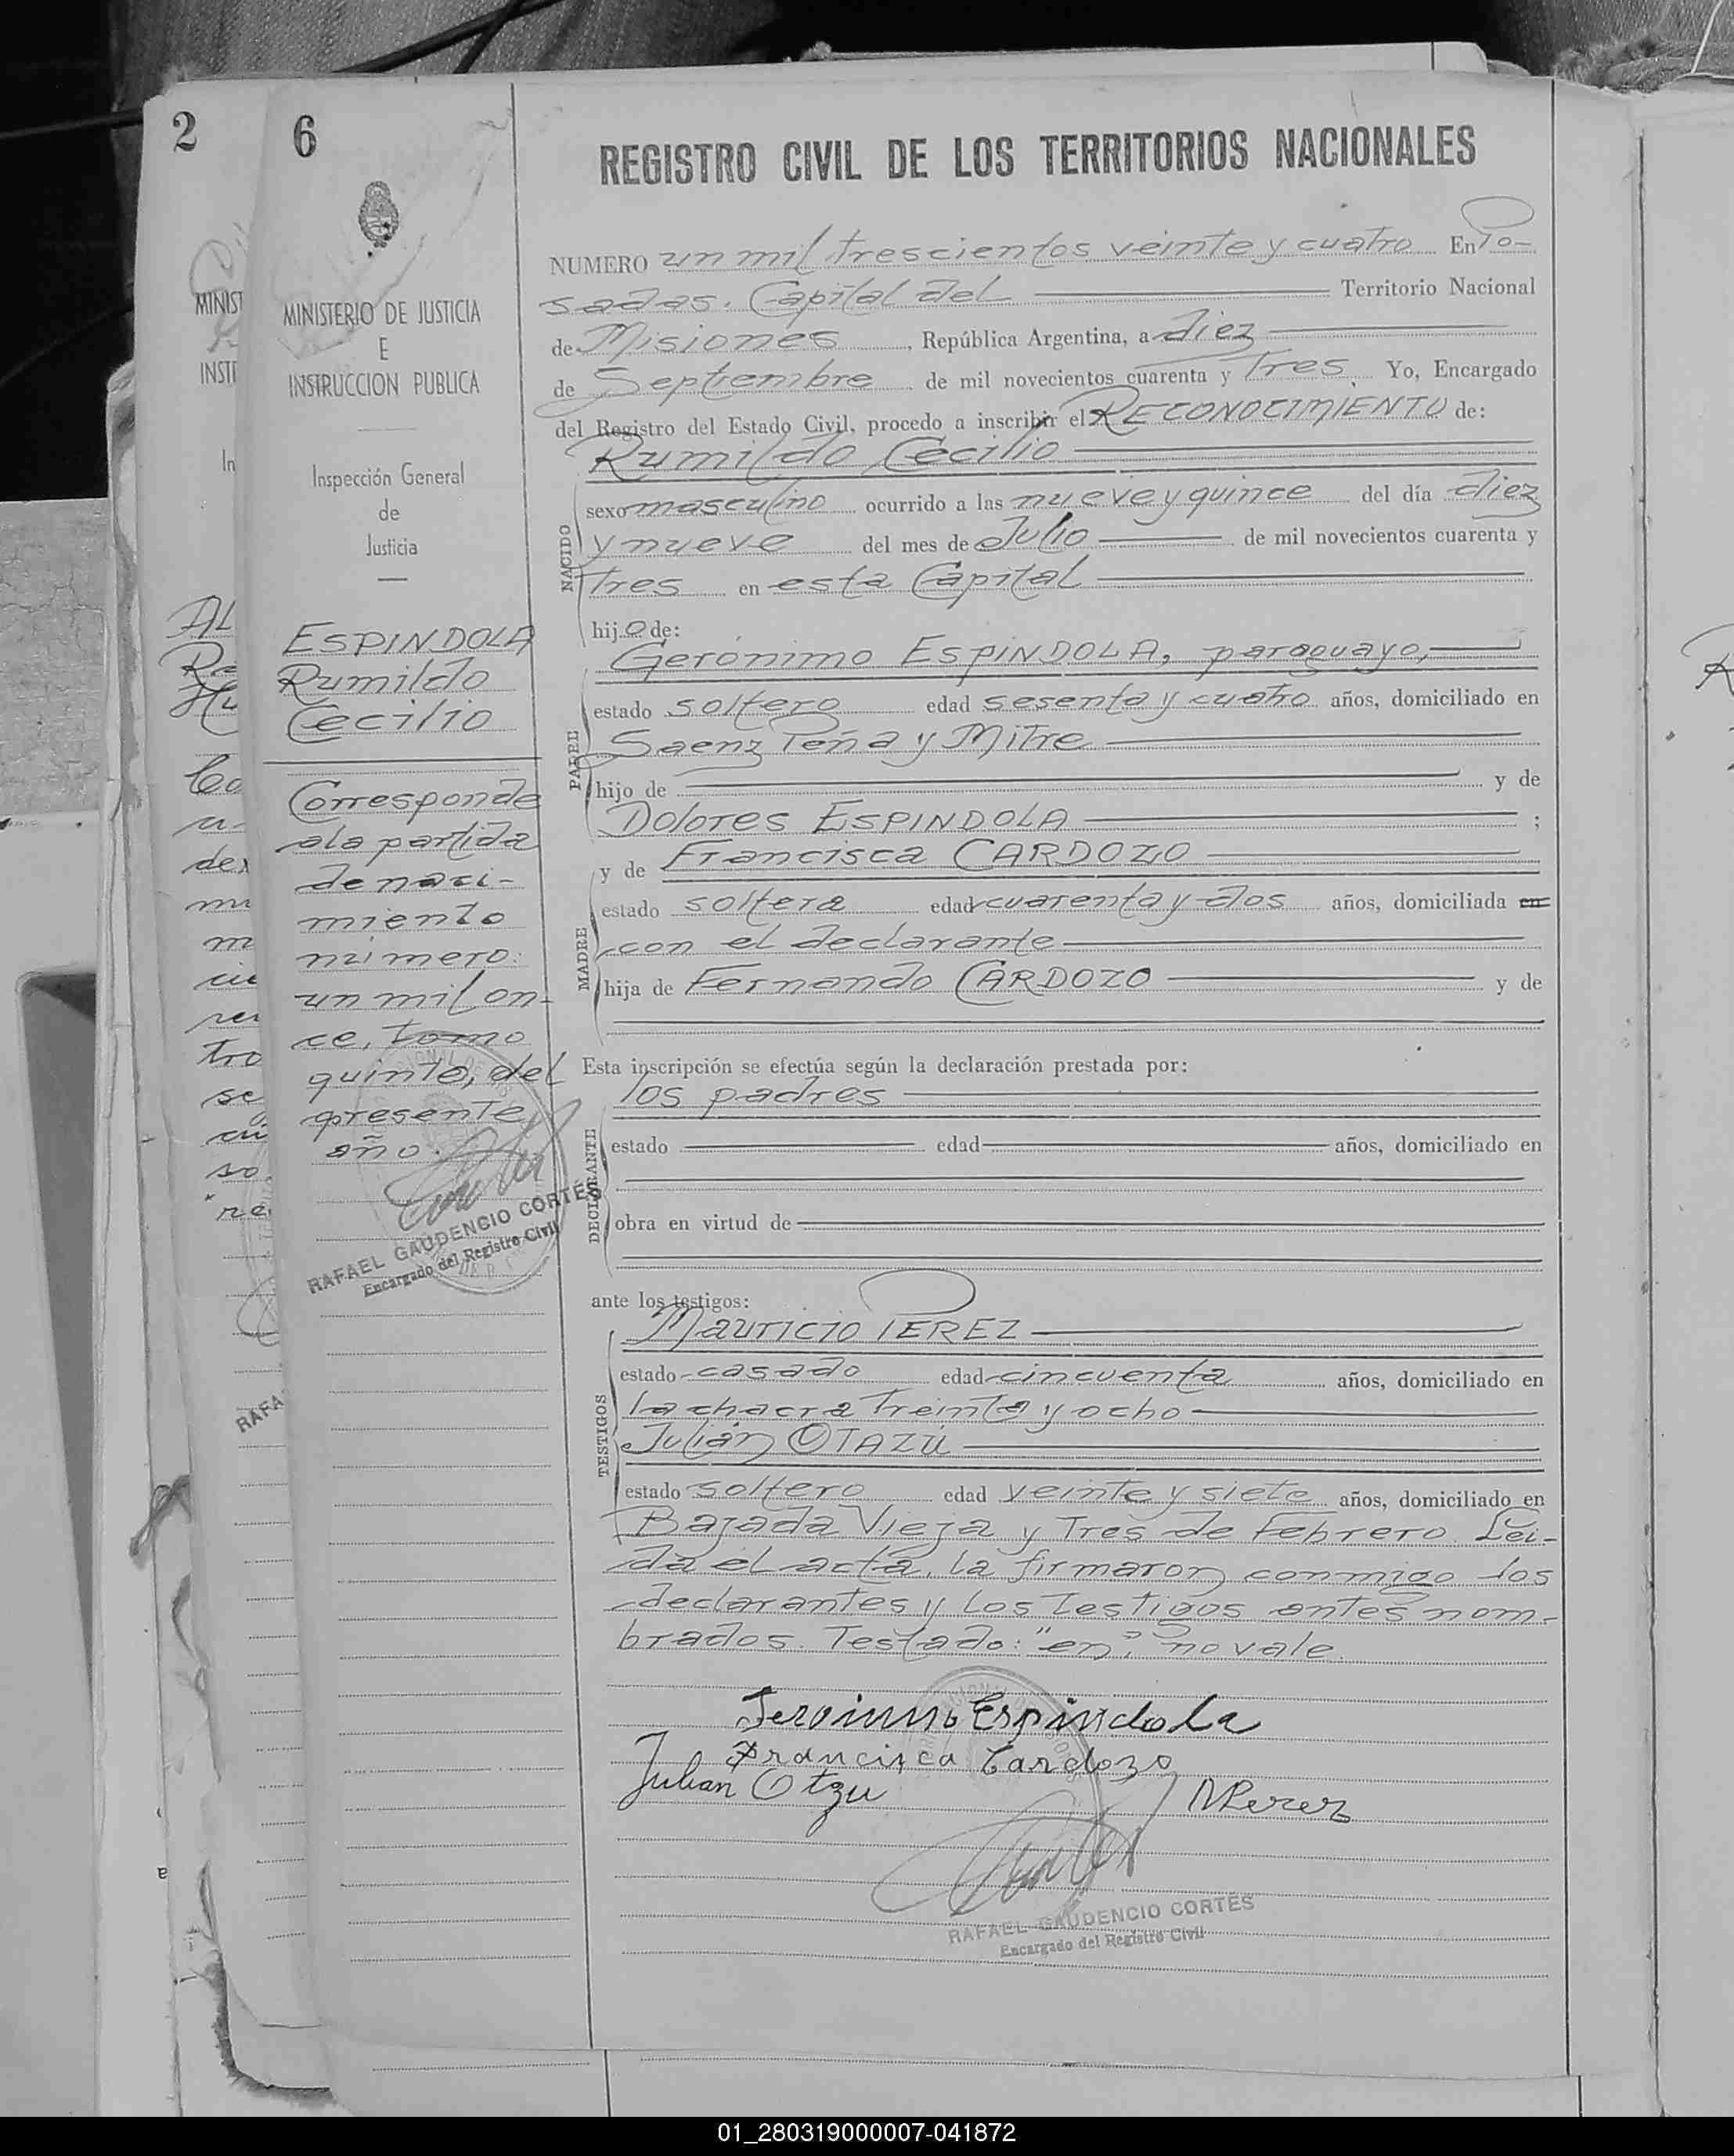 2
6
REGISTRO CIVIL DE LOS TERRITORIOS NACIONALES
MINIST
INSTI
In
AL
Re
Co
MINISTERIO DE JUSTICIA
E
INSTRUCCION PUBLICA
Inspección General
de
Justicia
ESPINDOLA
Rumildo
Cecilio
Corresponde
a la partida
de naci-
miento
número:
un mil on-
ce, tomo
quinto, del
presente
año.
RAFAEL GAUDENCIO CORTÉS
Encargado del Registro Civil
RAFA
NUMERO un mil trescientos veinte y cuatro En Po-
sadas. Capital del Territorio Nacional
de Misiones, República Argentina, a diez
de Septiembre de mil novecientos cuarenta y Tres. Yo, Encargado
del Registro del Estado Civil, procedo a inscribir el RECONOCIMIENTO de:
Rumildo Cecilio
NACIDO
sexo masculino ocurrido a las nueve y quince del día diez
y nueve del mes de Julio de mil novecientos cuarenta y
Tres en esta Capital
hijo de:
Gerónimo ESPINDOLA, paraguayo,
PADRE
estado soltero edad sesenta y cuatro años, domiciliado en
Saenz Peña y Mitre
hijo de y de
Dolores ESPINDOLA ;
y de Francisca CARDOZO
MADRE
estado soltera edad cuarenta y dos años, domiciliada en
con el declarante
hija de Fernando CARDOZO y de
Esta inscripción se efectúa según la declaración prestada por:
los padres
DECLARANTE
estado edad años, domiciliado en
obra en virtud de
ante los testigos:
Mauricio PEREZ
TESTIGOS
estado casado edad cincuenta años, domiciliado en
la chacra Treinta y ocho
Julián OTAZU
estado soltero edad veinte y siete años, domiciliado en
Bajada Vieja y Tres de Febrero. Leí-
da el acta, la firmaron conmigo los
declarantes y los testigos antes nom-
brados. Testado: "en", no vale.
Jeronimo Espindola
Francisca Cardozo
Julian Otzu
MPerez
RAFAEL GAUDENCIO CORTÉS
Encargado del Registro Civil
01_280319000007-041872